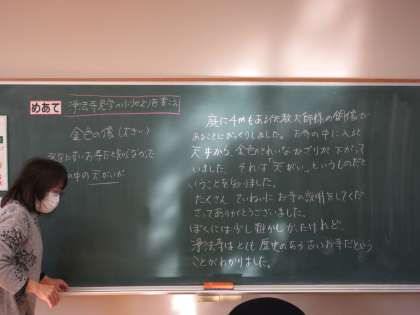 めあて
浄法寺見学のふりかえりを書こう
金色の像(大きい)
あんなに古いお寺だと知らなかった
の中の天がいが
庭に4mもある伝教大師様の銅像が
あることにびっくりしました。お寺の中に入ると
天井から金色のきれいなかざりが下がって
いました。それは「天がい」というものだと
いうことを知りました。
たくさんていねいにお寺の説明をしてくだ
さってありがとうございました。
ぼくには少し難しかったけれど、
浄法寺はとても歴史のある古いお寺だという
ことがわかりました。